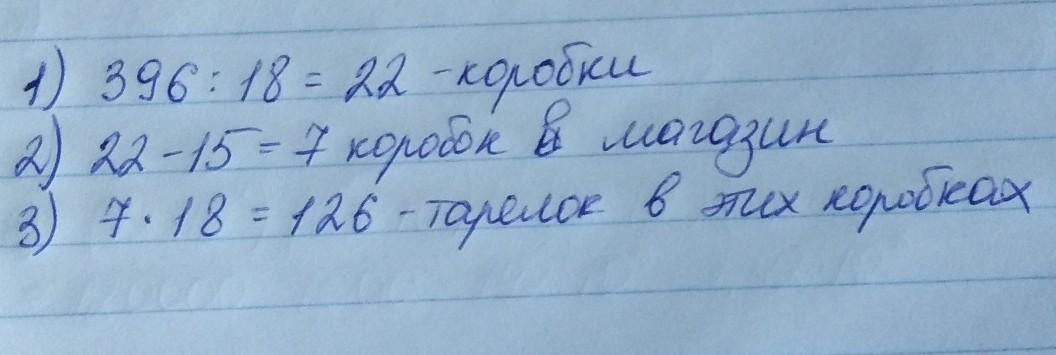 1) 396 : 18 = 22 - коробки
2) 22 - 15 = 7 коробок в магазин
3) 7 · 18 = 126 - тарелок в этих коробках